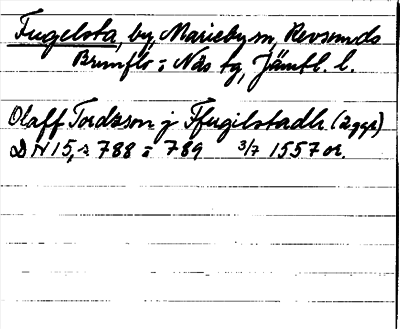 Fugelsta, by, Marieby sn, Revsunds
Brunflo o. Näs tg, Jämtl. l.
Olaff Tordzson j Ffugilstadh (2 ggr)
DN 15, s 788 o 789 3/7 1557 or.